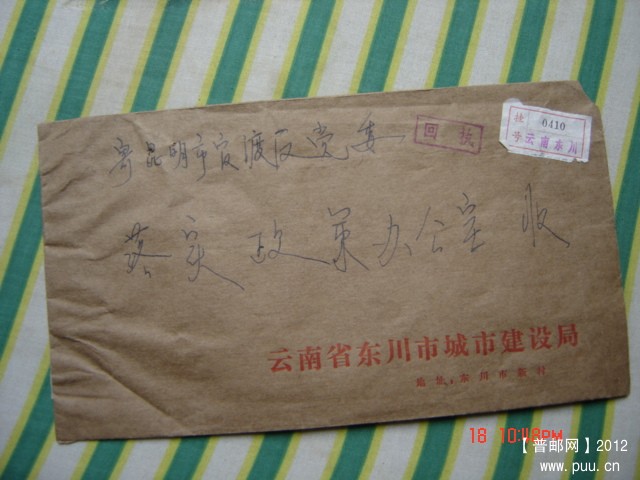 寄昆明市官渡区党委
回执
挂 0410
号 云南东川
落实政策办公室 收
云南省东川市城市建设局
地址：东川市新村
18 10:48PM
【普邮网】2012
www.puu.cn